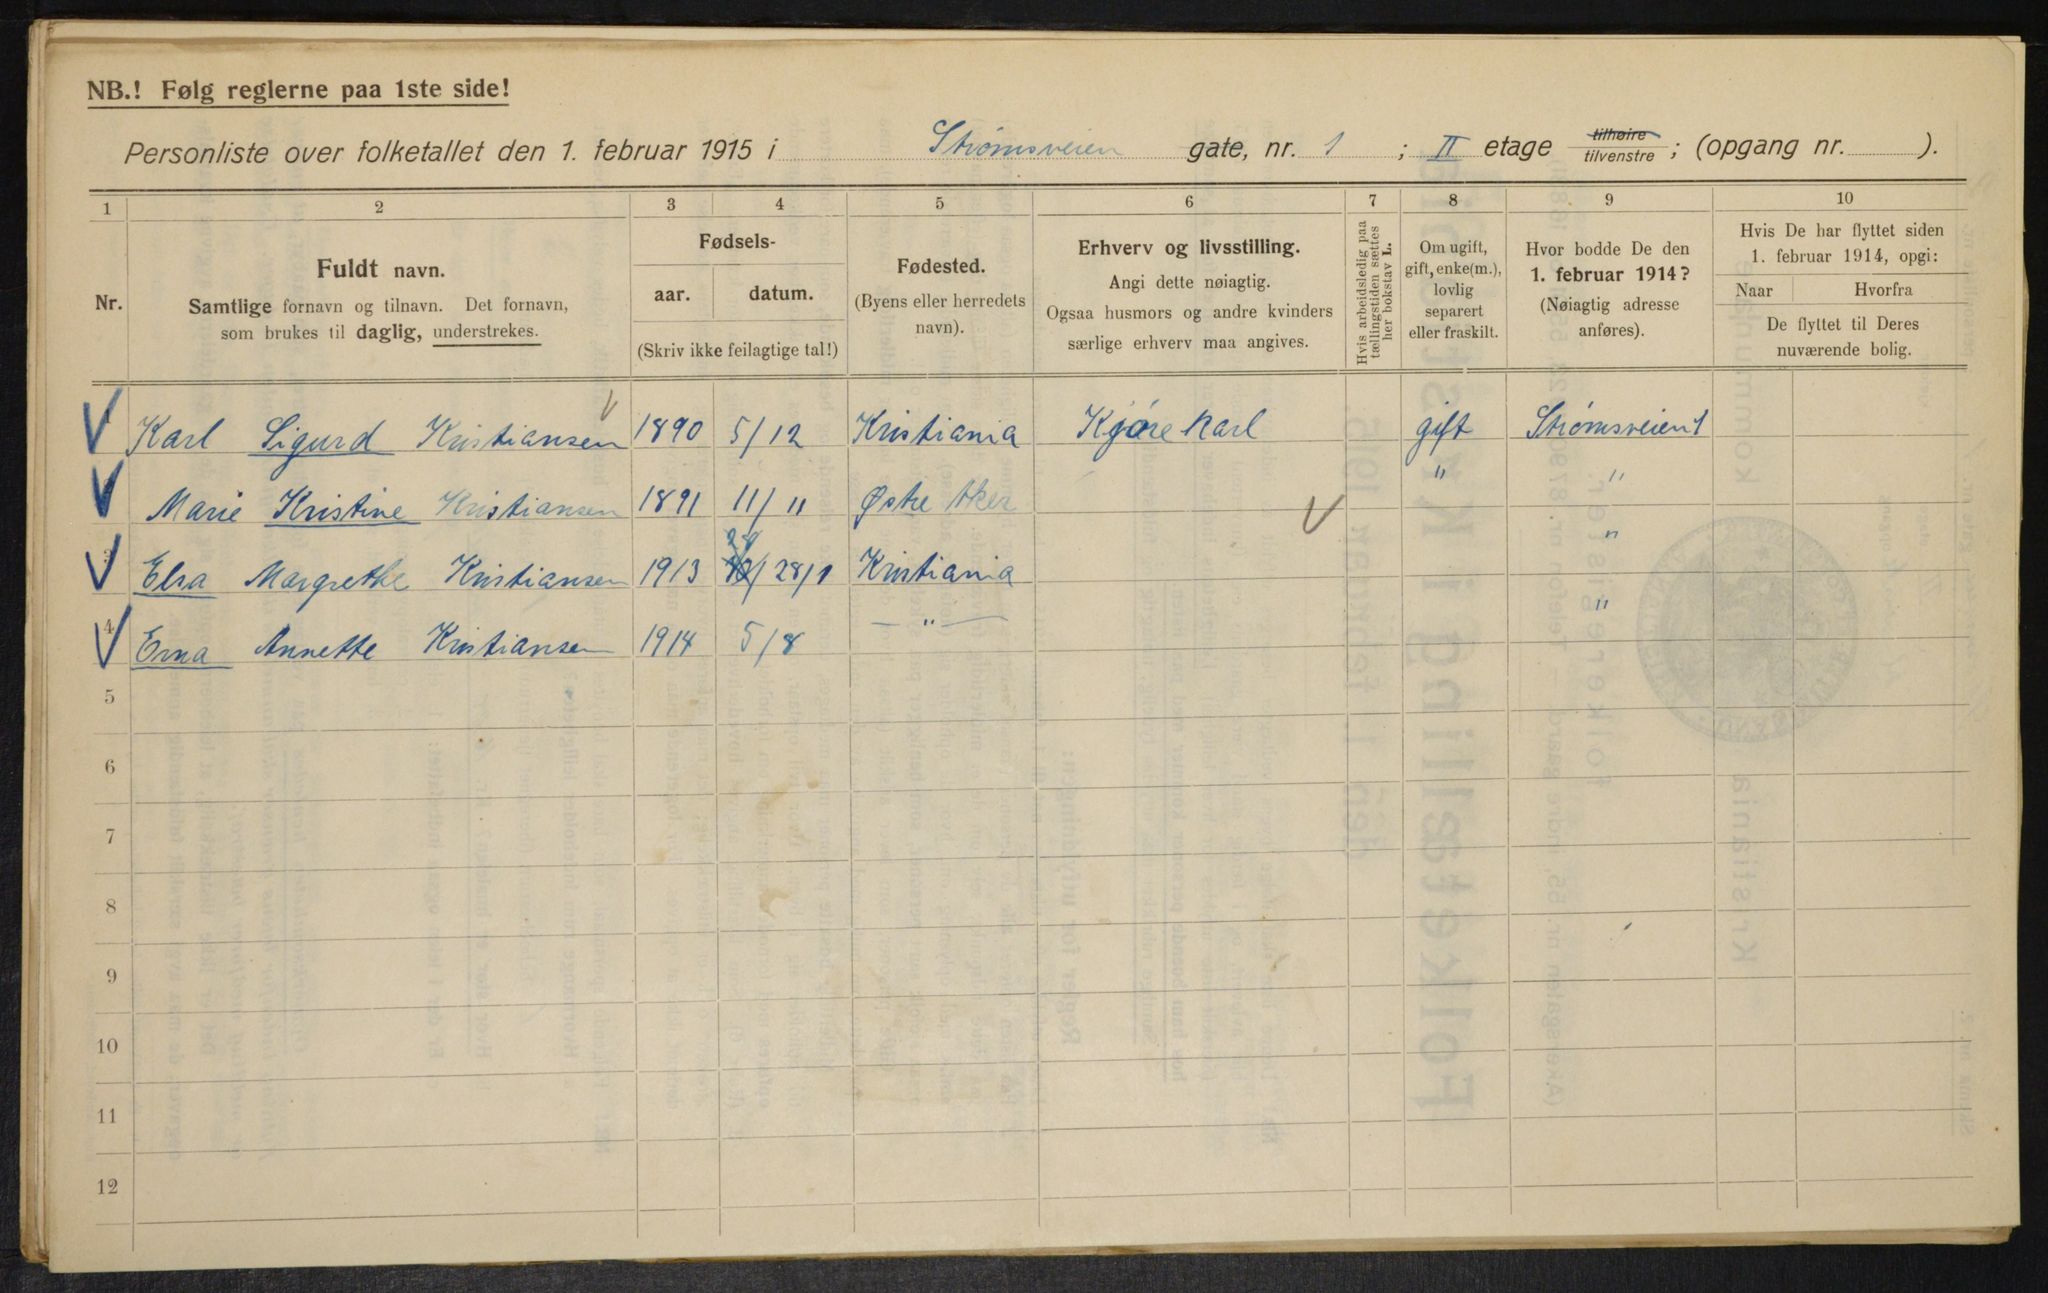 NB.! Følg reglerne paa 1ste side!
Personliste over folketallet den 1. februar 1915 i Strømsveien gate, nr. 1 ; II etage tilhøire tilvenstre ; (opgang nr. ).
1 2 3 4 5 6 7 8 9 10
Nr.
Fuldt navn.
Samtlige fornavn og tilnavn. Det fornavn,
som brukes til daglig, understrekes.
Fødsels-
aar. datum.
(Skriv ikke feilagtige tal!)
Fødested.
(Byens eller herredets
navn).
Erhverv og livsstilling.
Angi dette nøiagtig.
Ogsaa husmors og andre kvinders
særlige erhverv maa angives.
Hvis arbeidsledig paa
tællingstiden sættes
her bokstav L.
Om ugift,
gift, enke(m.),
lovlig
separert
eller fraskilt.
Hvor bodde De den
1. februar 1914?
(Nøiagtig adresse
anføres).
Hvis De har flyttet siden
1. februar 1914, opgi:
Naar Hvorfra
De flyttet til Deres
nuværende bolig.
Karl Sigurd Kristiansen 1890 5/12 Kristiania Kjørekarl gift Strømsveien 1
Marie Kristine Kristiansen 1891 11/11 Østre Aker " "
3 Elsa Margrethe Kristiansen 1913 28/1 Kristiania "
4 Erna Annette Kristiansen 1914 5/8 — " — "
5
6
7
8
9
10
11
12